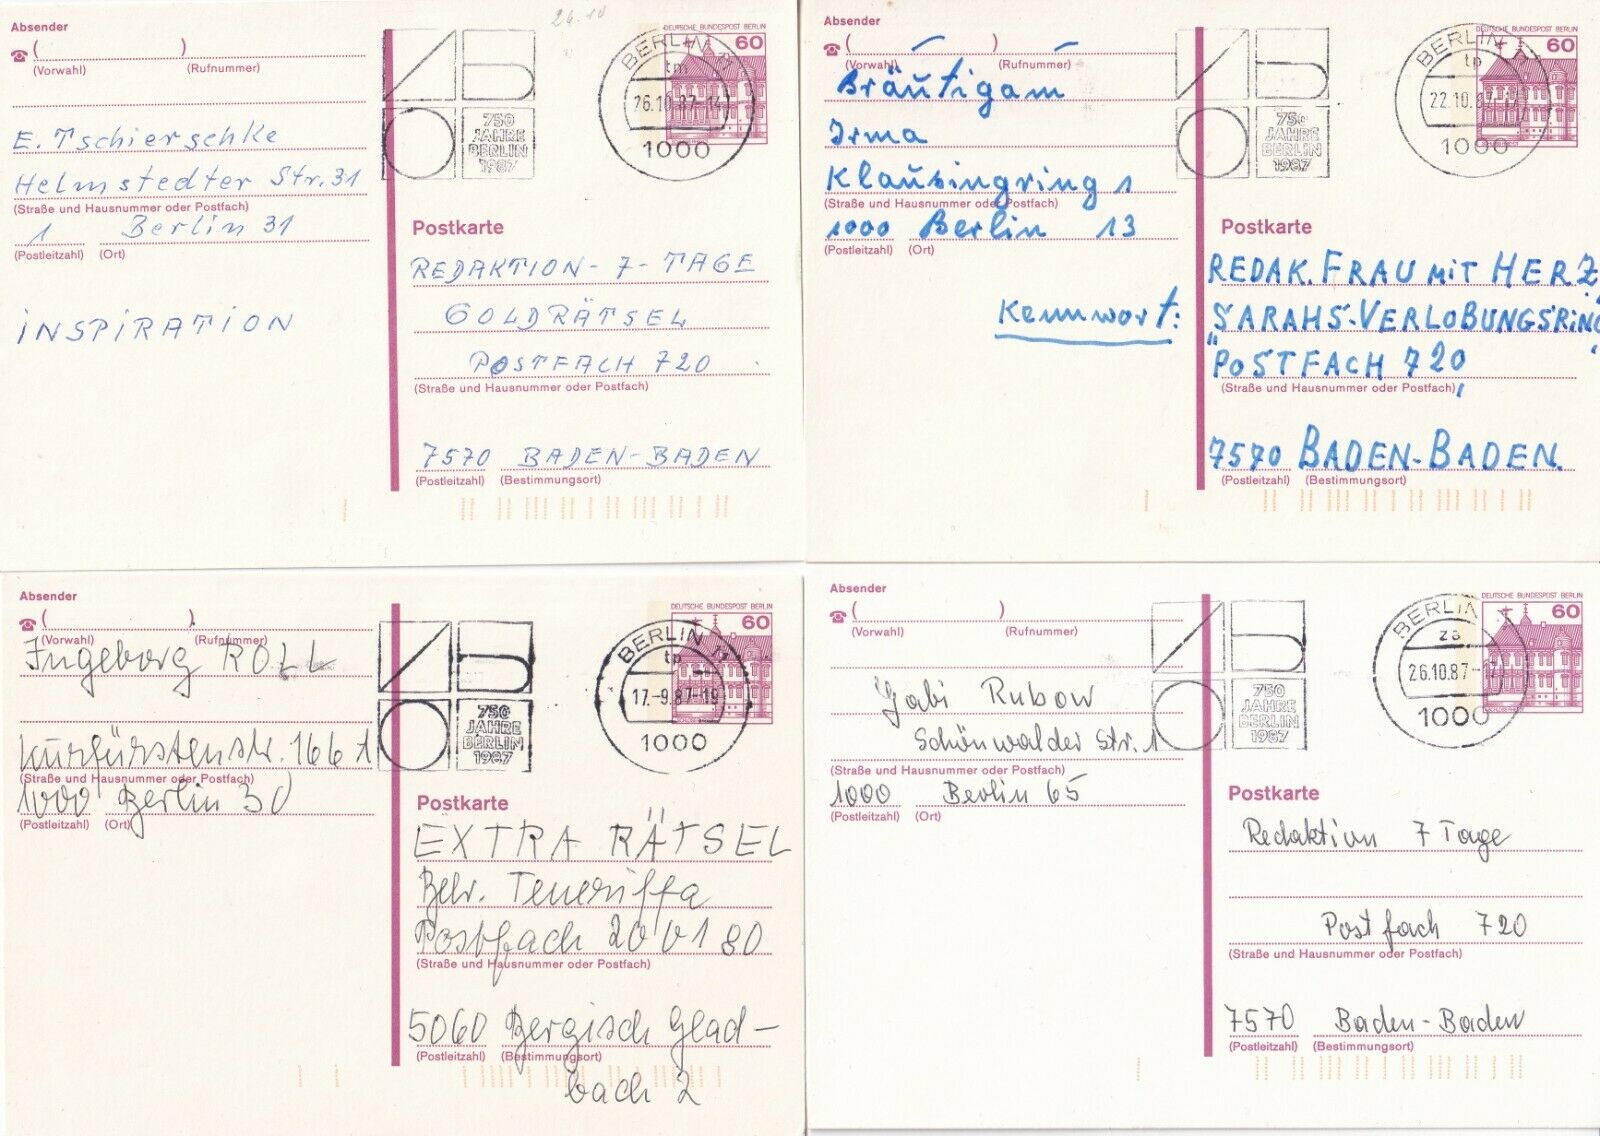 Absender
26.10
( )
(Vorwahl) (Rufnummer)
E. Tschierschke
Helmstedter Str. 31
(Straße und Hausnummer oder Postfach)
1 Berlin 31
(Postleitzahl) (Ort)
INSPIRATION
750
JAHRE
BERLIN
1987
BERLIN 11
tm
26.10.87-14
1000
DEUTSCHE BUNDESPOST BERLIN
60
Postkarte
REDAKTION-7-TAGE
GOLDRÄTSEL
POSTFACH 720
(Straße und Hausnummer oder Postfach)
7570 BADEN-BADEN
(Postleitzahl) (Bestimmungsort)
Absender
( )
(Vorwahl) (Rufnummer)
Bräutigam
Irma
Klausingring 1
(Straße und Hausnummer oder Postfach)
1000 Berlin 13
(Postleitzahl) (Ort)
Kennwort:
750
JAHRE
BERLIN
1987
BERLIN 11
tp
22.10.87-17
1000
DEUTSCHE BUNDESPOST BERLIN
60
Postkarte
REDAK. FRAU MIT HERZ,
"SARAHS-VERLOBUNGSRING"
POSTFACH 720,
(Straße und Hausnummer oder Postfach)
7570 BADEN-BADEN.
(Postleitzahl) (Bestimmungsort)
Absender
( )
(Vorwahl) (Rufnummer)
Ingeborg ROLL
Kurfürstenstr. 166 1
(Straße und Hausnummer oder Postfach)
1000 Berlin 30
(Postleitzahl) (Ort)
750
JAHRE
BERLIN
1987
BERLIN 11
tp
17.-9.87-19
1000
DEUTSCHE BUNDESPOST BERLIN
60
Postkarte
EXTRA RÄTSEL
Betr. Teneriffa
Postfach 200180
(Straße und Hausnummer oder Postfach)
5060 Bergisch Glad-
(Postleitzahl) (Bestimmungsort)
bach 2
Absender
( )
(Vorwahl) (Rufnummer)
Gabi Rubow
Schönwalder Str. 1
(Straße und Hausnummer oder Postfach)
1000 Berlin 65
(Postleitzahl) (Ort)
750
JAHRE
BERLIN
1987
BERLIN 11
za
26.10.87-17
1000
DEUTSCHE BUNDESPOST BERLIN
60
Postkarte
Redaktion 7 Tage
Postfach 720
(Straße und Hausnummer oder Postfach)
7570 Baden-Baden
(Postleitzahl) (Bestimmungsort)